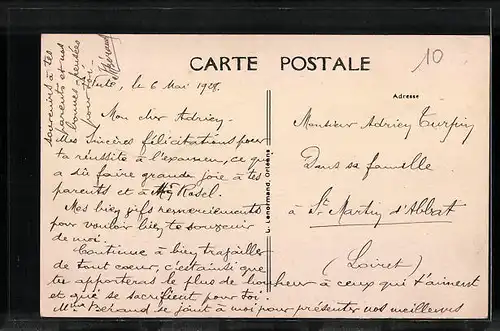 CARTE POSTALE
10
Adresse
le 6 Mai 1928.
Mon cher Adrien –
Mes sincères félicitations pour
ta réussite à l'examen, ce qui
a dû faire grande joie à tes
parents et à Mlle Rasel.
Mes bien vifs remerciements
pour vouloir bien te souvenir
de moi.
Continue à bien travailler
de tout coeur, c'est ainsi que
tu apporteras le plus de bonheur à ceux qui t'aiment
et que se sacrifient pour toi.
Mme Beraud se joint à moi pour présenter nos meilleurs
souvenirs à tes
parents et nos
bonnes pensées
pour toi.
L. Lenormand, Orléans
Monsieur Adrien Turpin
Dans sa famille
à St Martin d'Abbat
(Loiret)